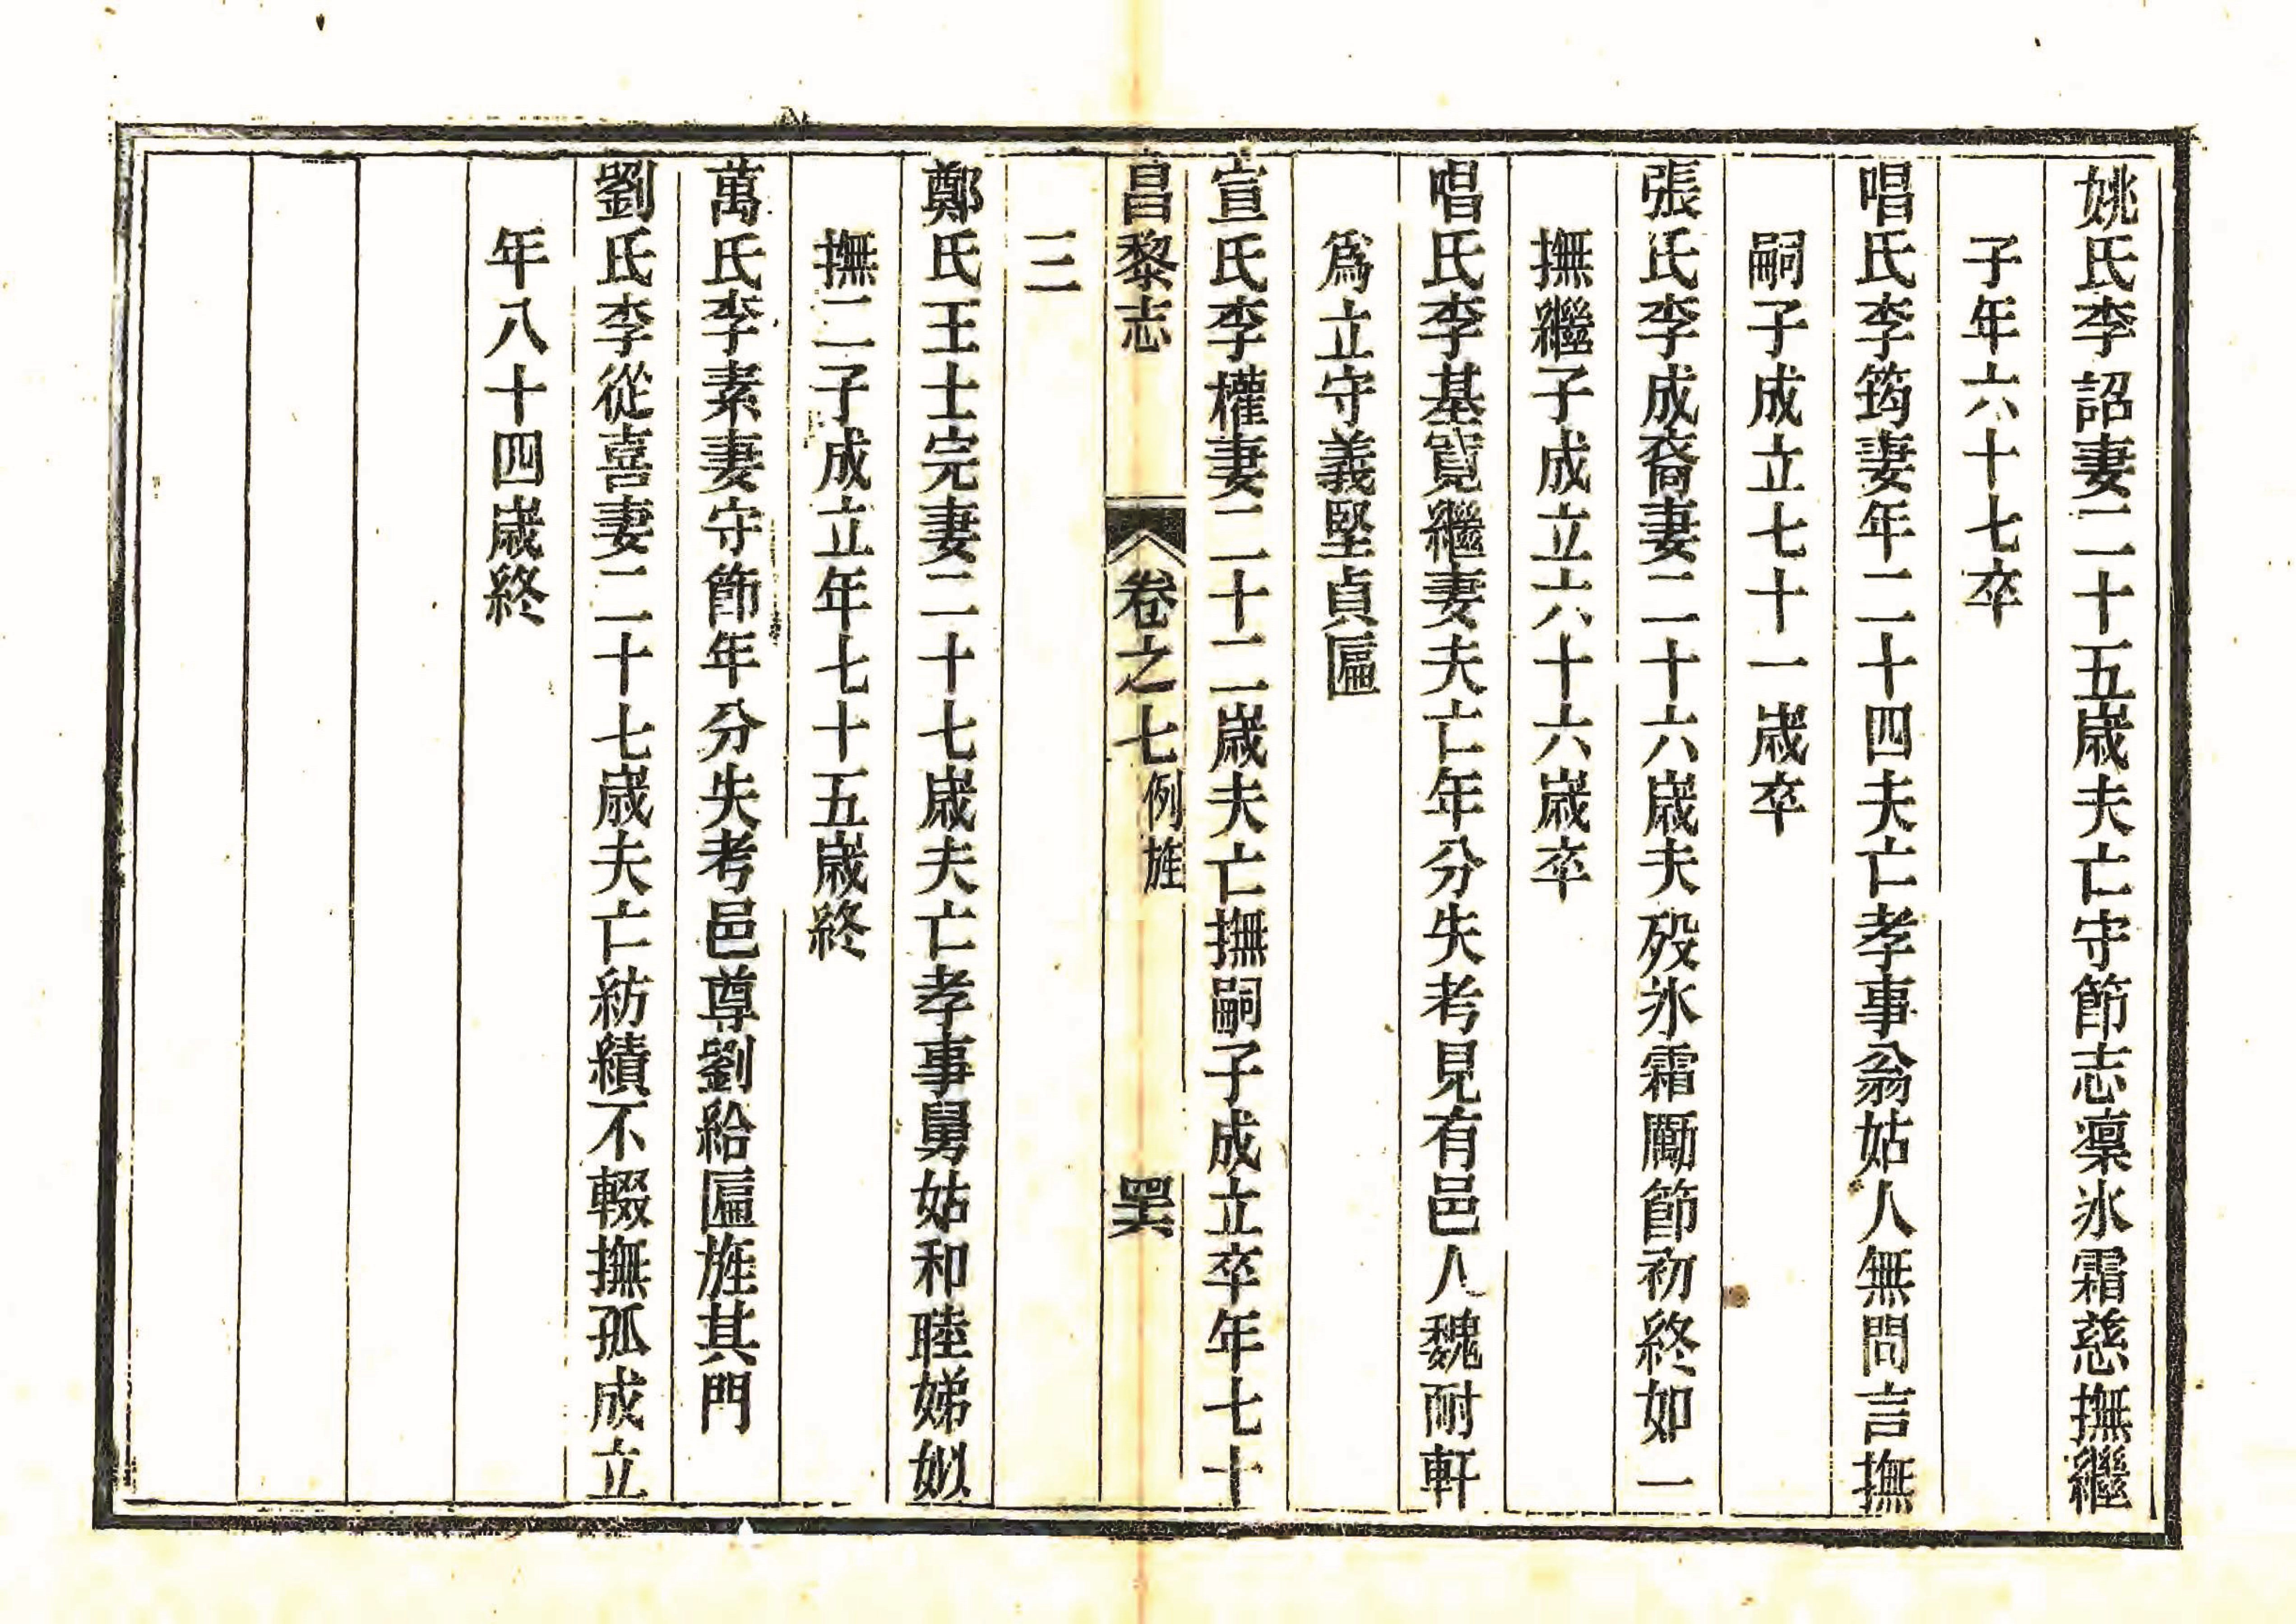 姚氏李詔妻二十五歲夫亡守節志凛氷霜慈撫繼
子年六十七卒
唱氏李筠妻年二十四夫亡孝事翁姑人無問言撫
嗣子成立七十一歲卒
張氏李成裔妻二十六歲夫殁氷霜勵節初終如一
撫繼子成立六十六歲卒
唱氏李基寬繼妻夫亡年分失考見有邑人魏耐軒
爲立守義堅貞匾
宣氏李權妻二十二歲夫亡撫嗣子成立卒年七十
昌黎志 卷之七 例旌 罢
三
鄭氏王士完妻二十七歲夫亡孝事舅姑和睦娣姒
撫二子成立年七十五歲終
萬氏李素妻守節年分失考邑尊劉給匾旌其門
劉氏李從喜妻二十七歲夫亡紡績不輟撫孤成立
年八十四歲終